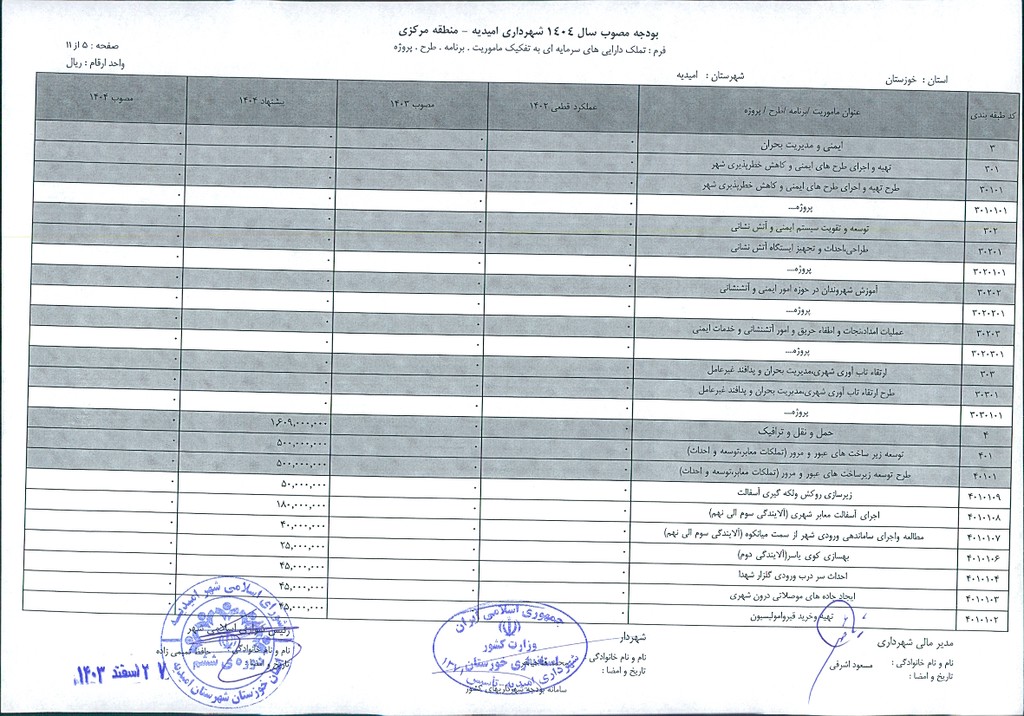 بودجه مصوب سال ۱۴۰۴ شهرداری امیدیه - منطقه مرکزی
فرم : تملک دارایی های سرمایه ای به تفکیک ماموریت . برنامه . طرح . پروژه
صفحه : ۵ از ۱۱
واحد ارقام : ریال
استان : خوزستان
شهرستان : امیدیه
کد طبقه بندی عنوان ماموریت /برنامه /طرح / پروژه عملکرد قطعی ۱۴۰۲ مصوب ۱۴۰۳ پیشنهاد ۱۴۰۴ مصوب ۱۴۰۴
۳ ایمنی و مدیریت بحران ۰ ۰ ۰ ۰
۳۰۱ تهیه و اجرای طرح های ایمنی و کاهش خطرپذیری شهر ۰ ۰ ۰ ۰
۳۰۱۰۱ طرح تهیه و اجرای طرح های ایمنی و کاهش خطرپذیری شهر ۰ ۰ ۰ ۰
۳۰۱۰۱۰۱ پروژه... ۰ ۰ ۰ ۰
۳۰۲ توسعه و تقویت سیستم ایمنی و آتش نشانی ۰ ۰ ۰ ۰
۳۰۲۰۱ طراحی،احداث و تجهیز ایستگاه آتش نشانی ۰ ۰ ۰ ۰
۳۰۲۰۱۰۱ پروژه... ۰ ۰ ۰ ۰
۳۰۲۰۲ آموزش شهروندان در حوزه امور ایمنی و آتشنشانی ۰ ۰ ۰ ۰
۳۰۲۰۲۰۱ پروژه... ۰ ۰ ۰ ۰
۳۰۲۰۳ عملیات امداد،نجات و اطفاء حریق و امور آتشنشانی و خدمات ایمنی ۰ ۰ ۰ ۰
۳۰۲۰۳۰۱ پروژه... ۰ ۰ ۰ ۰
۳۰۳ ارتقاء تاب آوری شهری،مدیریت بحران و پدافند غیرعامل ۰ ۰ ۰ ۰
۳۰۳۰۱ طرح ارتقاء تاب آوری شهری،مدیریت بحران و پدافند غیرعامل ۰ ۰ ۰ ۰
۳۰۳۰۱۰۱ پروژه... ۰ ۰ ۰ ۰
۴ حمل و نقل و ترافیک ۰ ۰ ۱,۶۰۹,۰۰۰,۰۰۰ ۰
۴۰۱ توسعه زیر ساخت های عبور و مرور (تملکات معابر،توسعه و احداث) ۰ ۰ ۵۰۰,۰۰۰,۰۰۰ ۰
۴۰۱۰۱ طرح توسعه زیرساخت های عبور و مرور (تملکات معابر،توسعه و احداث) ۰ ۰ ۵۰۰,۰۰۰,۰۰۰ ۰
۴۰۱۰۱۰۹ زیرسازی روکش ولکه گیری آسفالت ۰ ۰ ۵۰,۰۰۰,۰۰۰ ۰
۴۰۱۰۱۰۸ اجرای آسفالت معابر شهری (آلایندگی سوم الی نهم) ۰ ۰ ۱۸۰,۰۰۰,۰۰۰ ۰
۴۰۱۰۱۰۷ مطالعه واجرای ساماندهی ورودی شهر از سمت میانکوه (آلایندگی سوم الی نهم) ۰ ۰ ۴۰,۰۰۰,۰۰۰ ۰
۴۰۱۰۱۰۶ بهسازی کوی یاسر(آلایندگی دوم) ۰ ۰ ۲۵,۰۰۰,۰۰۰ ۰
۴۰۱۰۱۰۴ احداث سر درب ورودی گلزار شهدا ۰ ۰ ۴۵,۰۰۰,۰۰۰ ۰
۴۰۱۰۱۰۳ ایجاد جاده های موصلاتی درون شهری ۰ ۰ ۴۵,۰۰۰,۰۰۰ ۰
۴۰۱۰۱۰۲ تهیه وخرید قیروامولیسیون ۰ ۰ ۴۵,۰۰۰,۰۰۰
مدیر مالی شهرداری
نام و نام خانوادگی : مسعود اشرفی
تاریخ و امضا :
شهردار
نام و نام خانوادگی :
تاریخ و امضا :
جمهوری اسلامی ایران
وزارت کشور
استانداری خوزستان
شهرداری امیدیه - تاسیس
سامانه بودجه شهرداریهای کشور
رئیس شورای اسلامی شهر
نام و نام خانوادگی :
تاریخ و امضا :
شورای اسلامی شهر امیدیه
خوزستان شهرستان امیدیه
۲۷ اسفند ۱۴۰۳